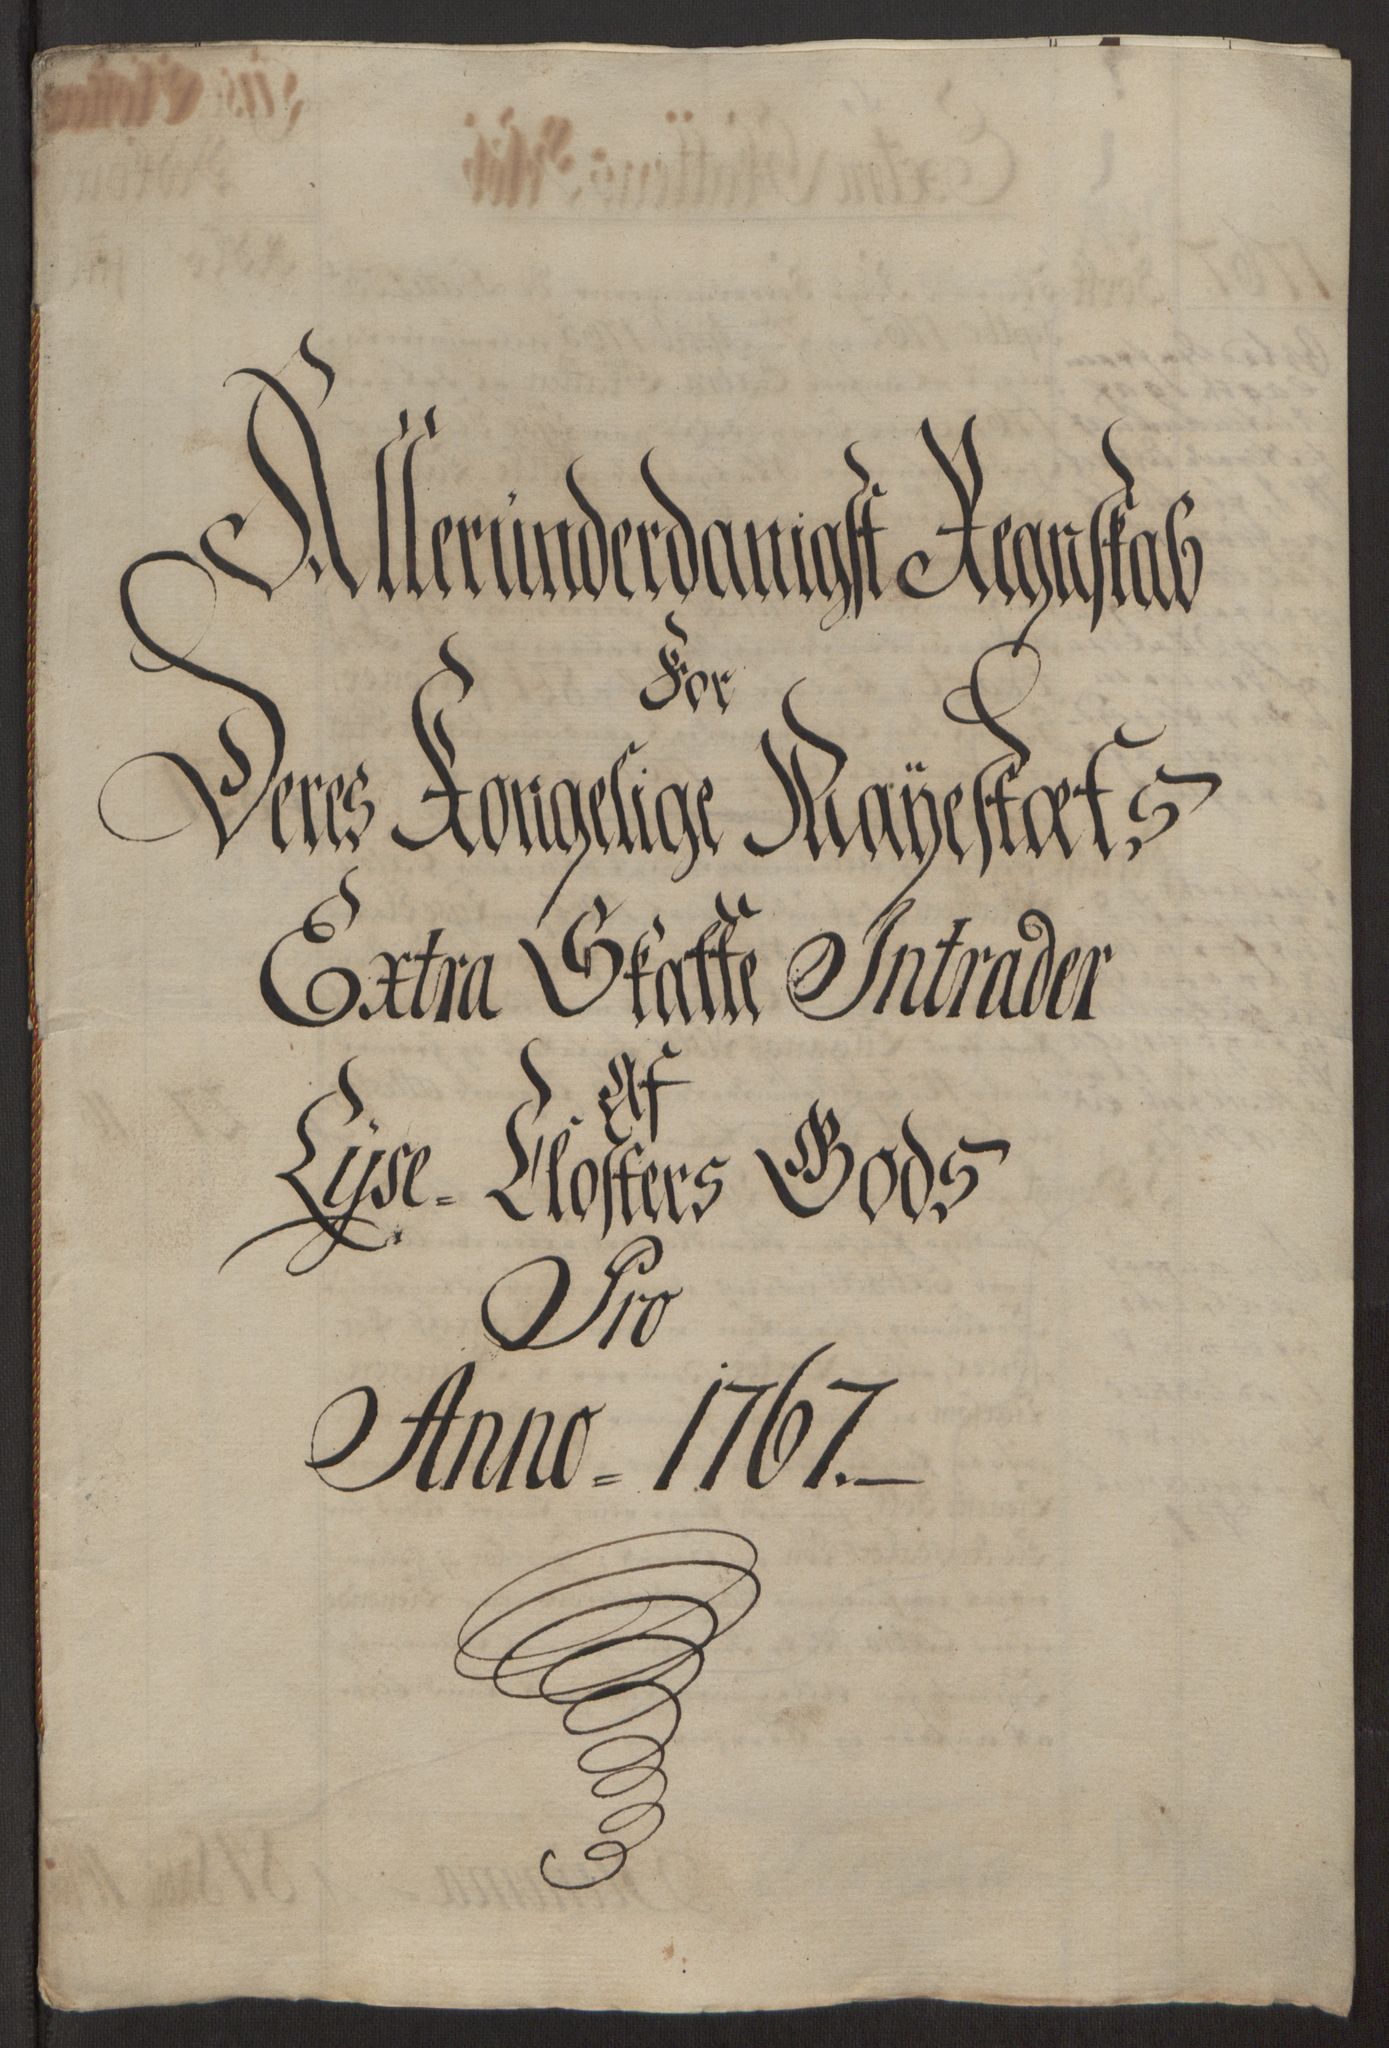 Alleründerdanigst Regnskab
For
Deres Kongelige Mayestæts
Extra Skatte Intrader
Af
Lyse- Closters Gods
Pro
Anno- 1767.